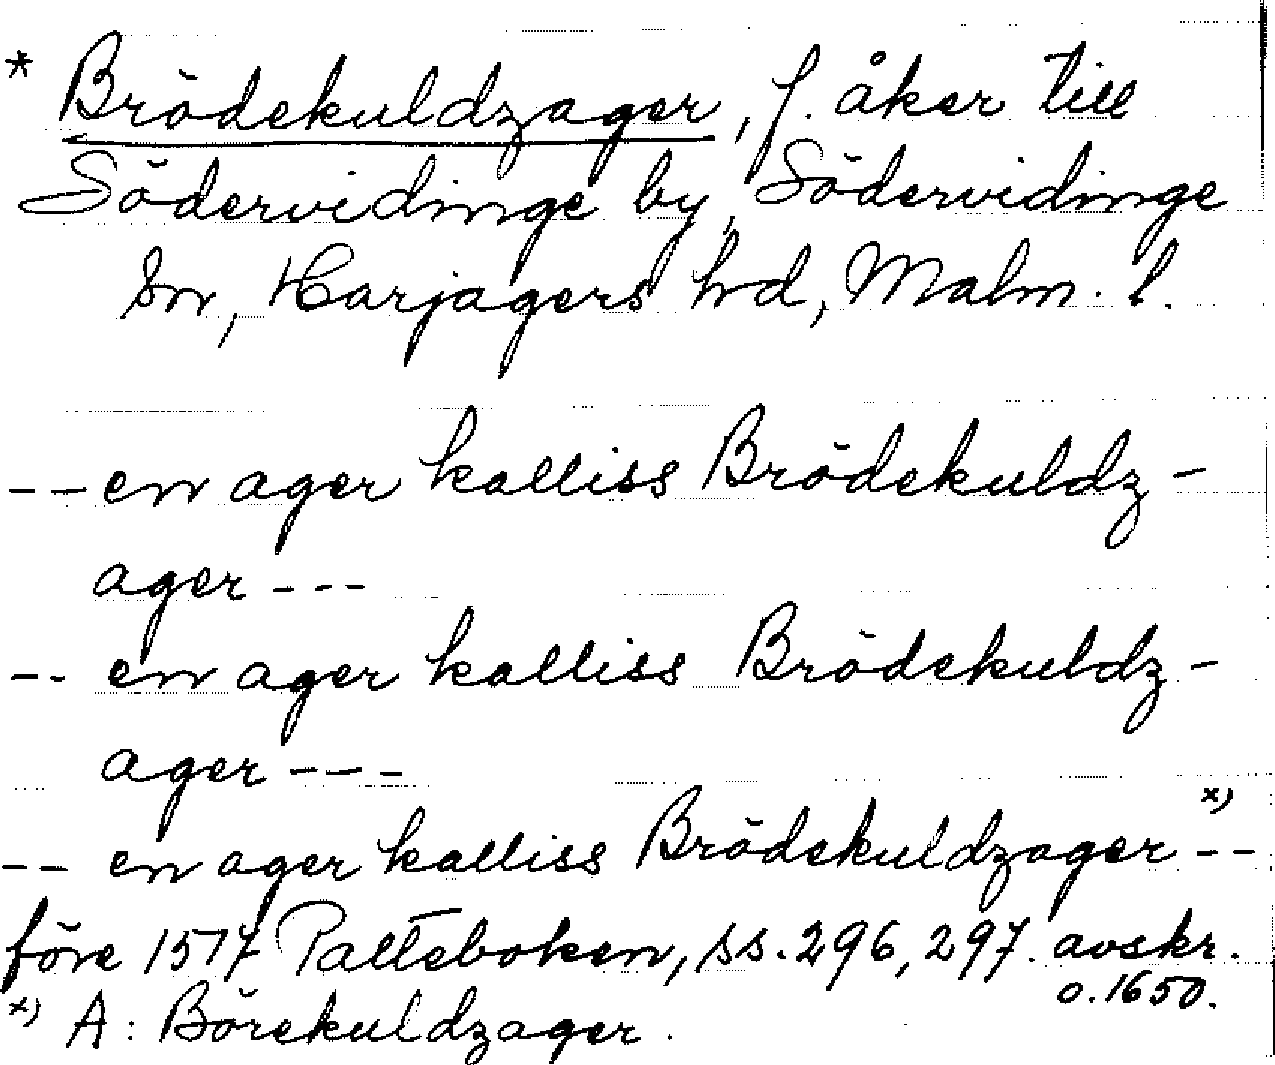 * Brödekuldzager, f. åker till
Södervidinge by, Södervidinge
sn, Harjagers hd, Malm. l.
-- en ager kalliss Brödekuldz-
ager ---
-- en ager kalliss Brödekuldz-
ager ---
-- en ager kalliss Brödekuldzager x) --
före 1517 Palteboken, ss. 296, 297. avskr.
o. 1650.
x) A: Börekuldzager.